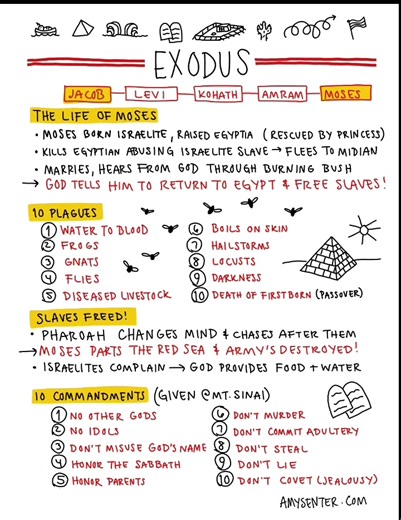 EXODUS
JACOB LEVI KOHATH AMRAM MOSES
THE LIFE OF MOSES
• MOSES BORN ISRAELITE, RAISED EGYPTIA (RESCUED BY PRINCESS)
• KILLS EGYPTIAN ABUSING ISRAELITE SLAVE → FLEES TO MIDIAN
• MARRIES, HEARS FROM GOD THROUGH BURNING BUSH
→ GOD TELLS HIM TO RETURN TO EGYPT & FREE SLAVES!
10 PLAGUES
1 WATER TO BLOOD
2 FROGS
3 GNATS
4 FLIES
5 DISEASED LIVESTOCK
6 BOILS ON SKIN
7 HAILSTORMS
8 LOCUSTS
9 DARKNESS
10 DEATH OF FIRSTBORN (PASSOVER)
SLAVES FREED!
• PHAROAH CHANGES MIND & CHASES AFTER THEM
→ MOSES PARTS THE RED SEA & ARMY'S DESTROYED!
• ISRAELITES COMPLAIN → GOD PROVIDES FOOD + WATER
10 COMMANDMENTS (GIVEN @ MT. SINAI)
1 NO OTHER GODS
2 NO IDOLS
3 DON'T MISUSE GOD'S NAME
4 HONOR THE SABBATH
5 HONOR PARENTS
6 DON'T MURDER
7 DON'T COMMIT ADULTERY
8 DON'T STEAL
9 DON'T LIE
10 DON'T COVET (JEALOUSY)
AMYSENTER.COM